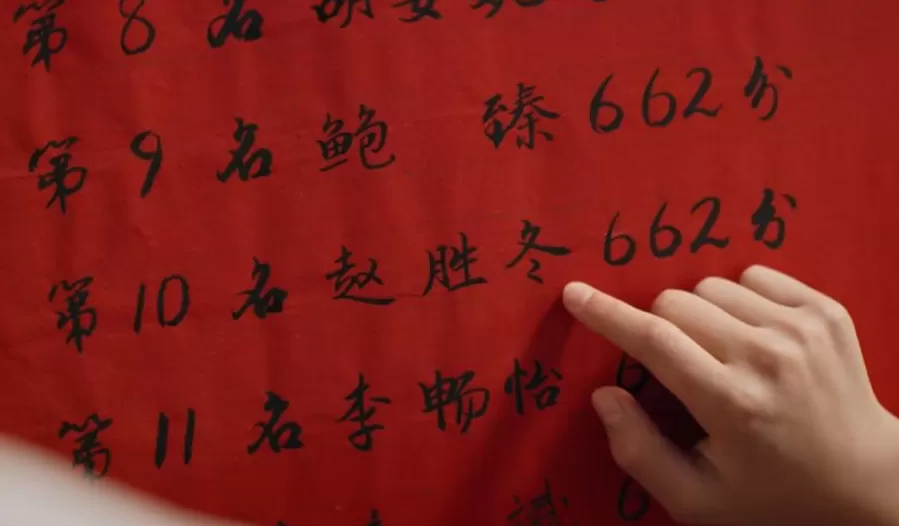 第8名胡
第9名鲍 臻662分
第10名赵胜冬662分
第11名李畅怡6
诚6